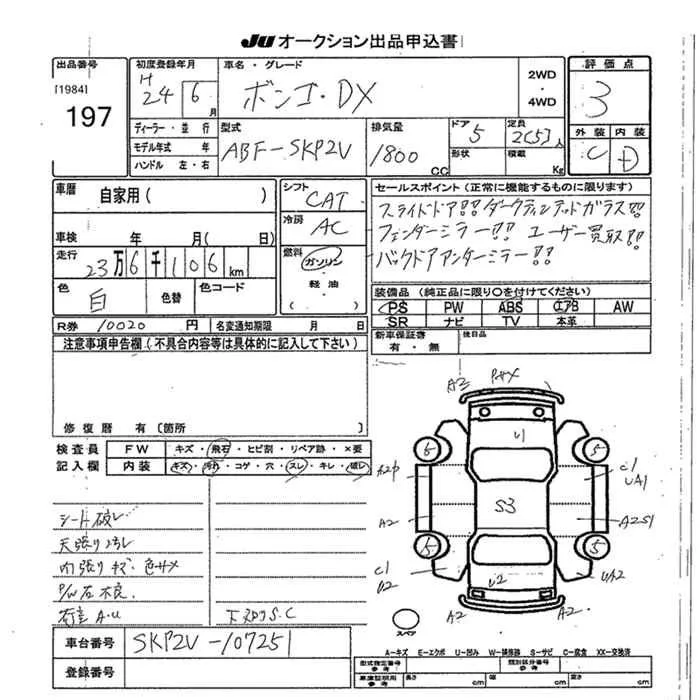 JU オークション出品申込書
出品番号
[1984]
197
初度登録年月
H
24 6月
車名・グレード
ボンゴ・DX
2WD
・
4WD
評価点
3
外装 内装
C D
ディーラー・並行
モデル年式 年
ハンドル 左・右
型式
ABF-SKP2V
排気量
1800 CC
ドア
5
形状
定員
2(5)人
積載
Kg
車歴 自家用( )
車検 年 月( 日)
走行
23万6千106km
色
白
色替
色コード
シフト
CAT
冷房
AC
燃料
ガソリン
・
軽油
( )
セールスポイント(正常に機能するものに限ります)
スライドドア!! ダークティンテッドガラス!!
フェンダーミラー!! ユーザー買取!!
バックドアアンダーミラー!!
装備品(純正品に限り○を付けてください)
PS PW ABS エアB AW
SR ナビ TV 本革
新車保証書
有・無
後日品
R券 10020 円 名変通知期限 月 日
注意事項申告欄(不具合内容等は具体的に記入して下さい)
修復歴 有〔箇所 〕
検査員
記入欄
FW キズ・飛石・ヒビ割・リペア跡・×要
内装 キズ・汚れ・コゲ・穴・スレ・キレ・破レ
シート破レ
天張りヨゴレ
内張りキズ・色サメ
P/W左不良
下廻りS.C
車台番号 SKP2V-107251
登録番号
A2 Pサメ
U1
6 6
A2P
C1
UA1
S3
A2
A2S1
5 5
C1
U2
U2
UA2
A2 A2
スペア
A-キズ E-エクボ U-凹み W-補修跡 S-サビ C-腐食 XX-交換済
型式指定番号
参考
類別区分番号
参考
車庫証明用
参考
長さ cm 幅 cm 高さ cm